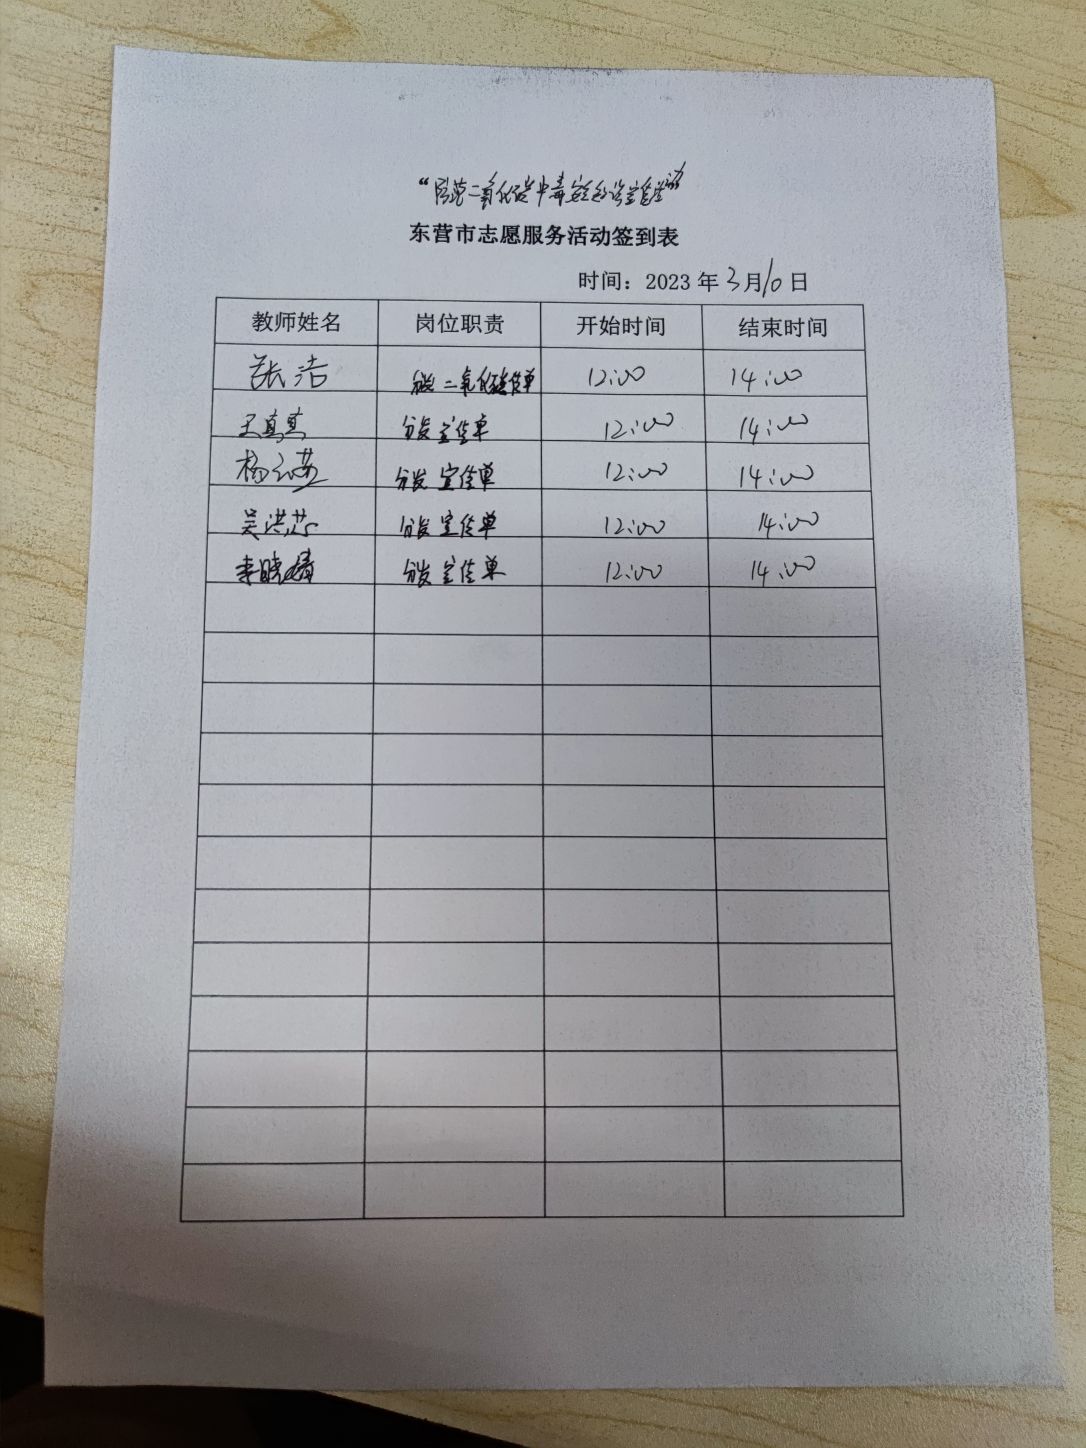 “防范二氧化碳中毒
东营市志愿服务活动签到表
时间：2023 年 3月10日
教师姓名 岗位职责 开始时间 结束时间
张洁 分发二氧化碳传单 12:00 14:00
王真真 分发宣传单 12:00 14:00
杨 分发宣传单 12:00 14:00
吴洪芯 分发宣传单 12:00 14:00
李晓婧 分发宣传单 12:00 14:00